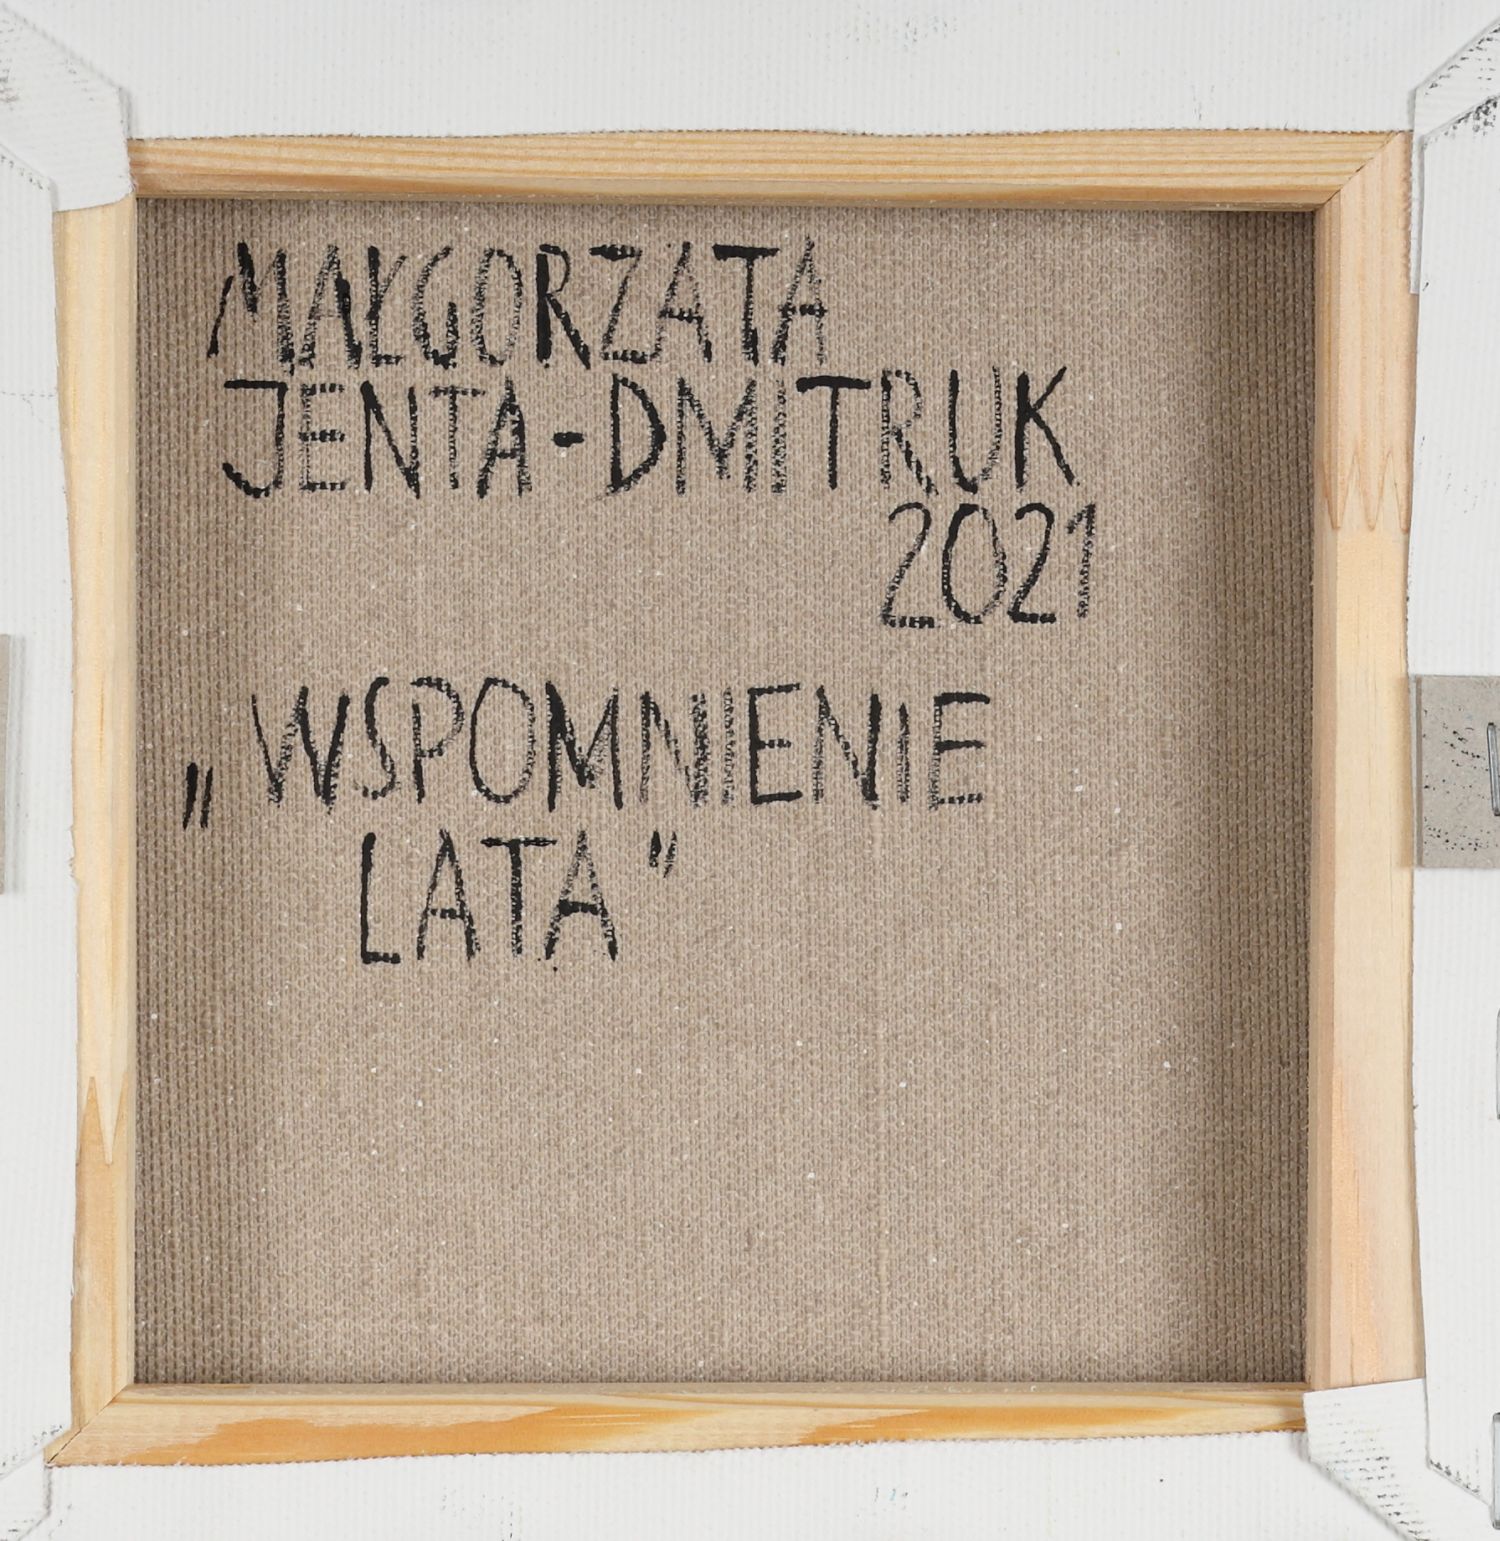 MAŁGORZATA
JENTA-DMITRUK
2021
„WSPOMNIENIE
LATA"